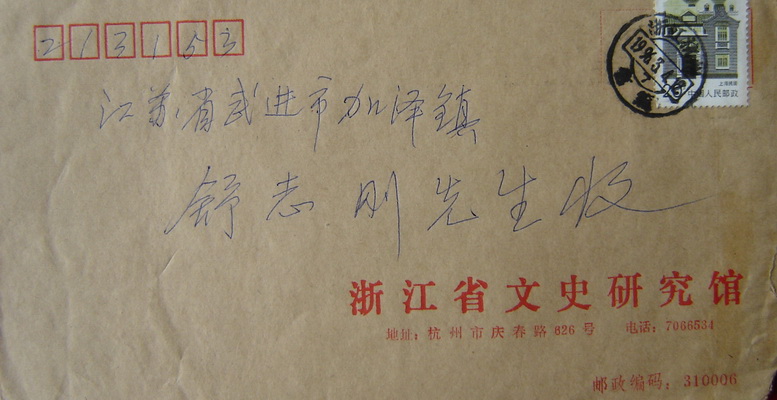 213153
浙江杭州
1996.3.4
上海民居
中国人民邮政
江苏省武进市加泽镇
舒志刚先生收
浙江省文史研究馆
地址：杭州市庆春路626号 电话：7066534
邮政编码：310006